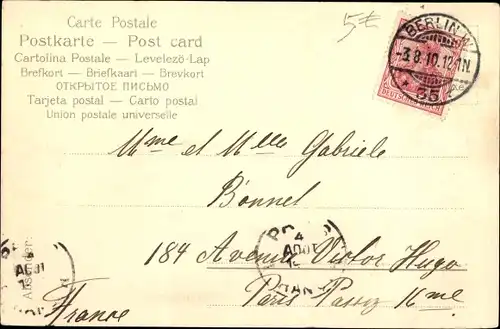 Carte Postale
Postkarte — Post card
Cartolina Postale — Levelező-Lap
Brefkort — Briefkaart — Brevkort
ОТКРЫТОЕ ПИСЬМО
Tarjeta postal — Carto postal
Union postale universelle
5€
BERLIN W.
-3.8.10.12-1N.
* 35
DEUTSCHES REICH
Mme et Mlle Gabriele
Bonnel
4
AOUT
184 Avenue Victor Hugo
Paris Passy XVI me
France
AOUT
Absender: